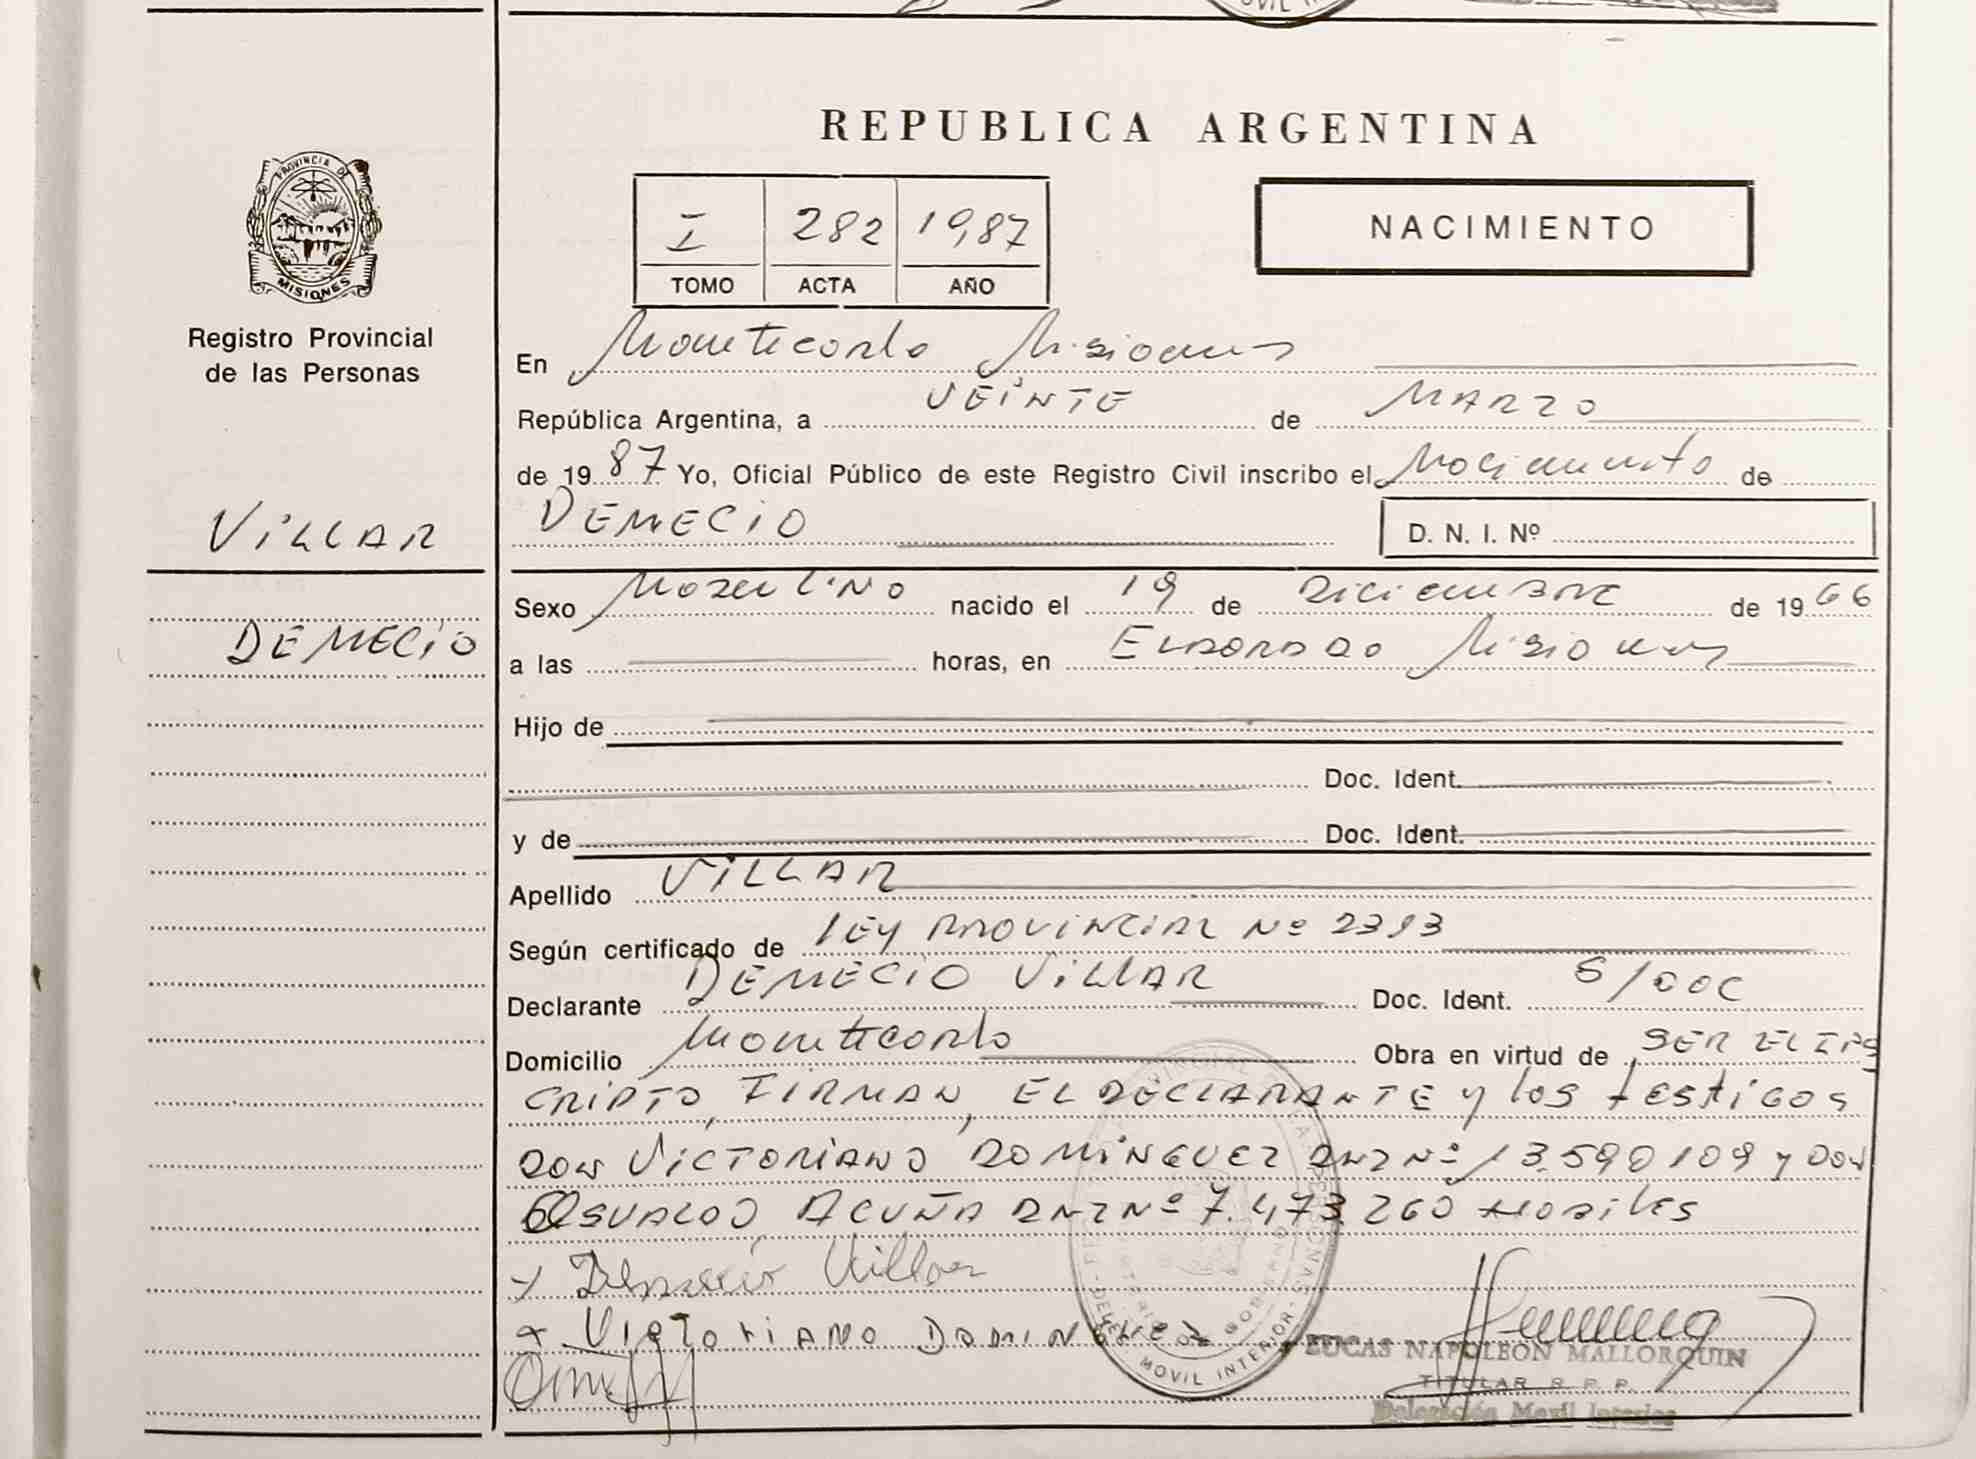 REPUBLICA ARGENTINA
PROVINCIA DE
MISIONES
Registro Provincial
de las Personas
VILLAR
DEMECIO
I 282 19,87
TOMO ACTA AÑO
NACIMIENTO
En Montecarlo Misiones
República Argentina, a VEINTE de MARZO
de 19 87 Yo, Oficial Público de este Registro Civil inscribo el Nacimiento de
DEMECIO D. N. I. Nº
Sexo Masculino nacido el 19 de Diciembre de 19 66
a las horas, en ELDORADO Misiones
Hijo de
Doc. Ident.
y de Doc. Ident.
Apellido VILLAR
Según certificado de LEY PROVINCIAL Nº 2393
Declarante DEMECIO VILLAR Doc. Ident. S/DOC
Domicilio Montecarlo Obra en virtud de SER EL INS
CRIPTO, FIRMAN, EL DECLARANTE y los testigos
DON VICTORIANO DOMINGUEZ DNI Nº 13.590109 y DON
OSVALDO ACUÑA DNI Nº 7.473.260 Habiles
Demecio Villar
Victoriano Dominguez
MOVIL INTERIOR
LUCAS NAPOLEON MALLORQUIN
TITULAR R. P. P.
Delegación Movil Interior